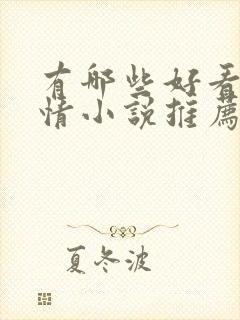 有哪些好看
情小說推薦
夏冬波